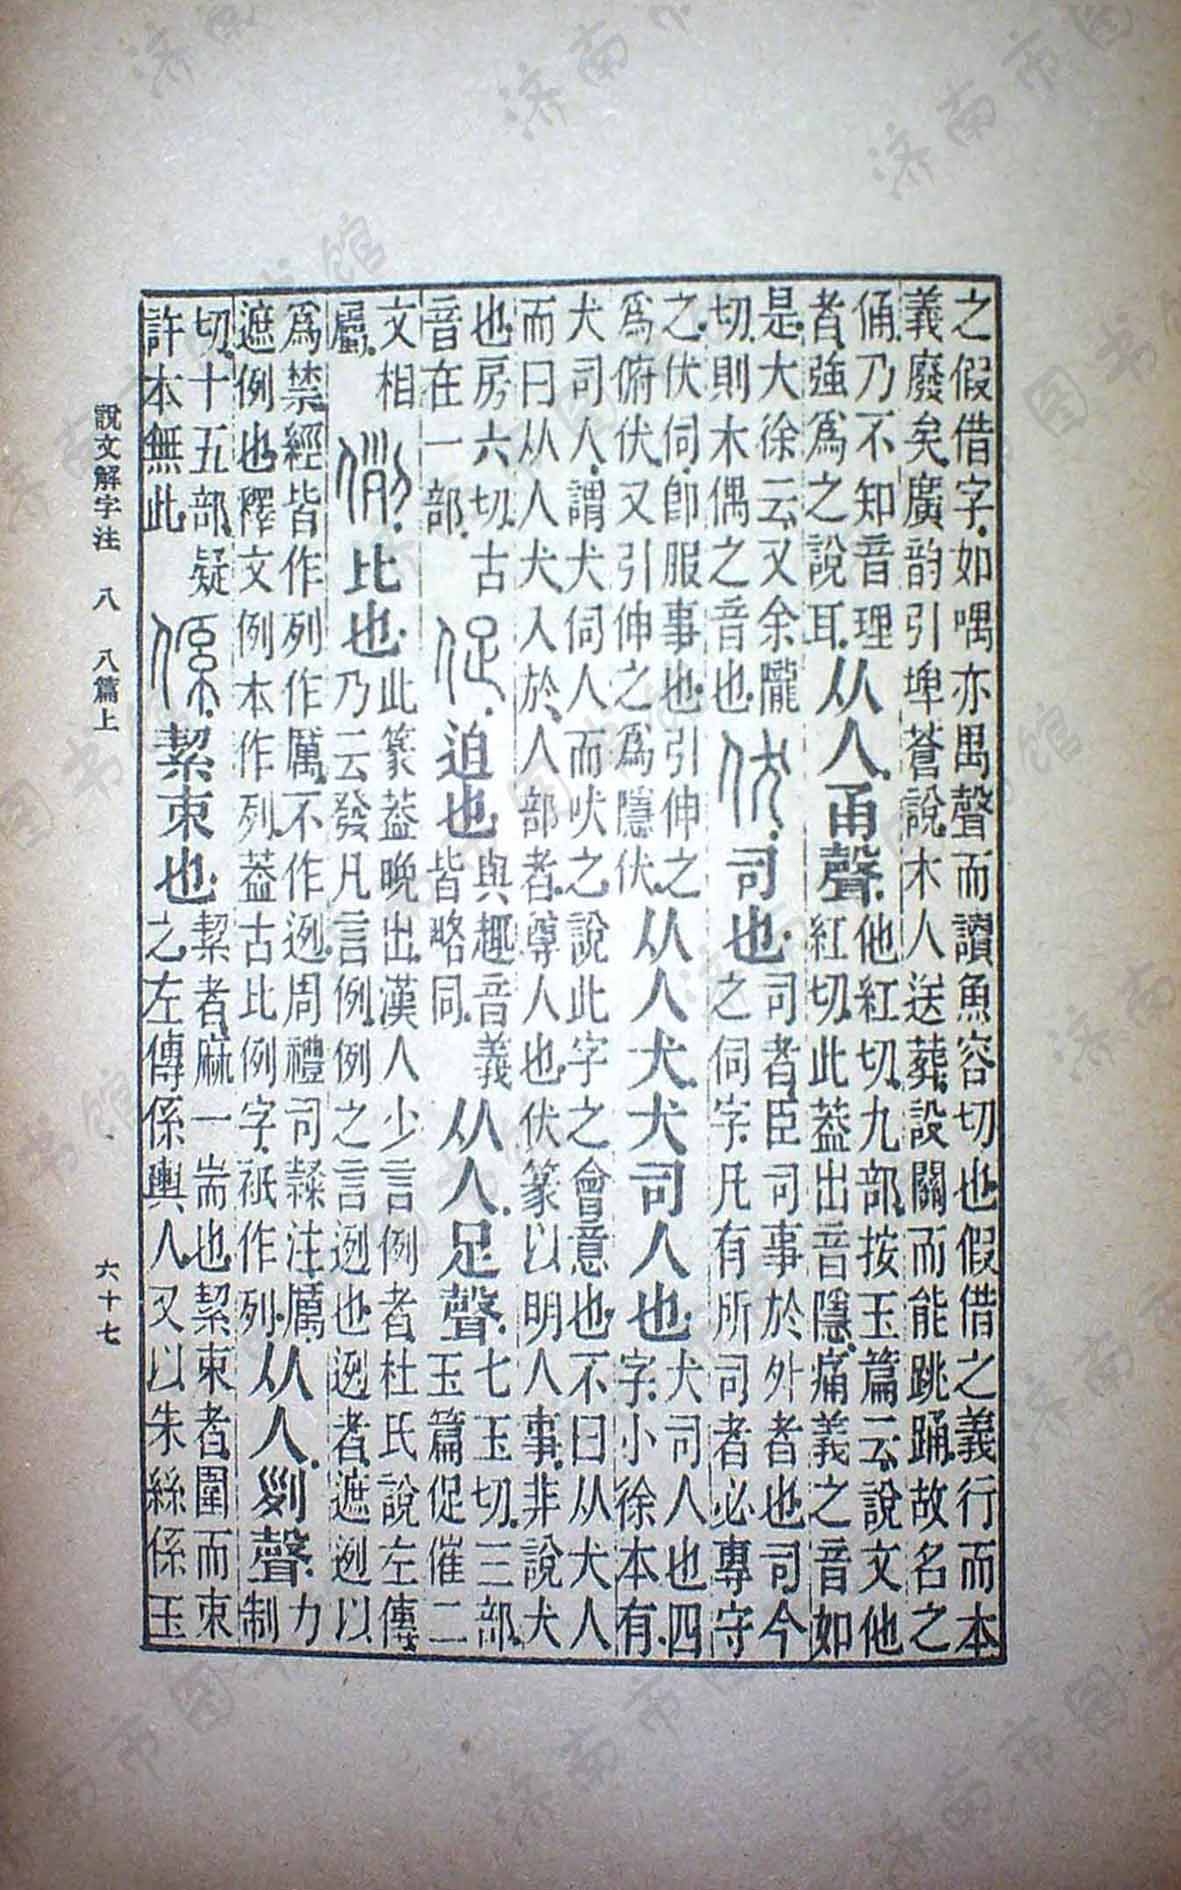 之假借字如喁亦禺聲而讀魚容切也假借之義行而本
義廢矣廣韵引埤蒼說木人送葬設關而能跳踊故名之
俑乃不知音理
者強爲之說耳
从人甬聲
他紅切九部按玉篇云說文他
紅切此葢出音隱痛義之音如
是大徐云又余隴
切則木偶之音也
伏司也
司者臣司事於外者也司今
之伺字凡有所司者必專守
之伏伺卽服事也引伸之
爲俯伏又引伸之爲隱伏
从人犬犬司人也
犬司人也四
字小徐本有
犬司人謂犬伺人而吠之說此字之會意也不曰从犬人
而曰从人犬入於人部者尊人也伏篆以明人事非說犬
也房六切古
音在一部
促迫也
與趣音義
皆略同
从人足聲
七玉切三部
玉篇促催二
文相
屬
例比也
此篆葢晚出漢人少言例者杜氏說左傳
乃云發凡言例例之言迾也迾者遮迾以
爲禁經皆作列作厲不作迾周禮司隸注厲
遮例也釋文例本作列葢古比例字衹作列
从人𠛱聲
力
制
切十五部疑
許本無此
係絜束也
絜者麻一耑也絜束者圍而束
之左傳係輿人又以朱絲係玉
說文解字注 八 八篇上
六十七